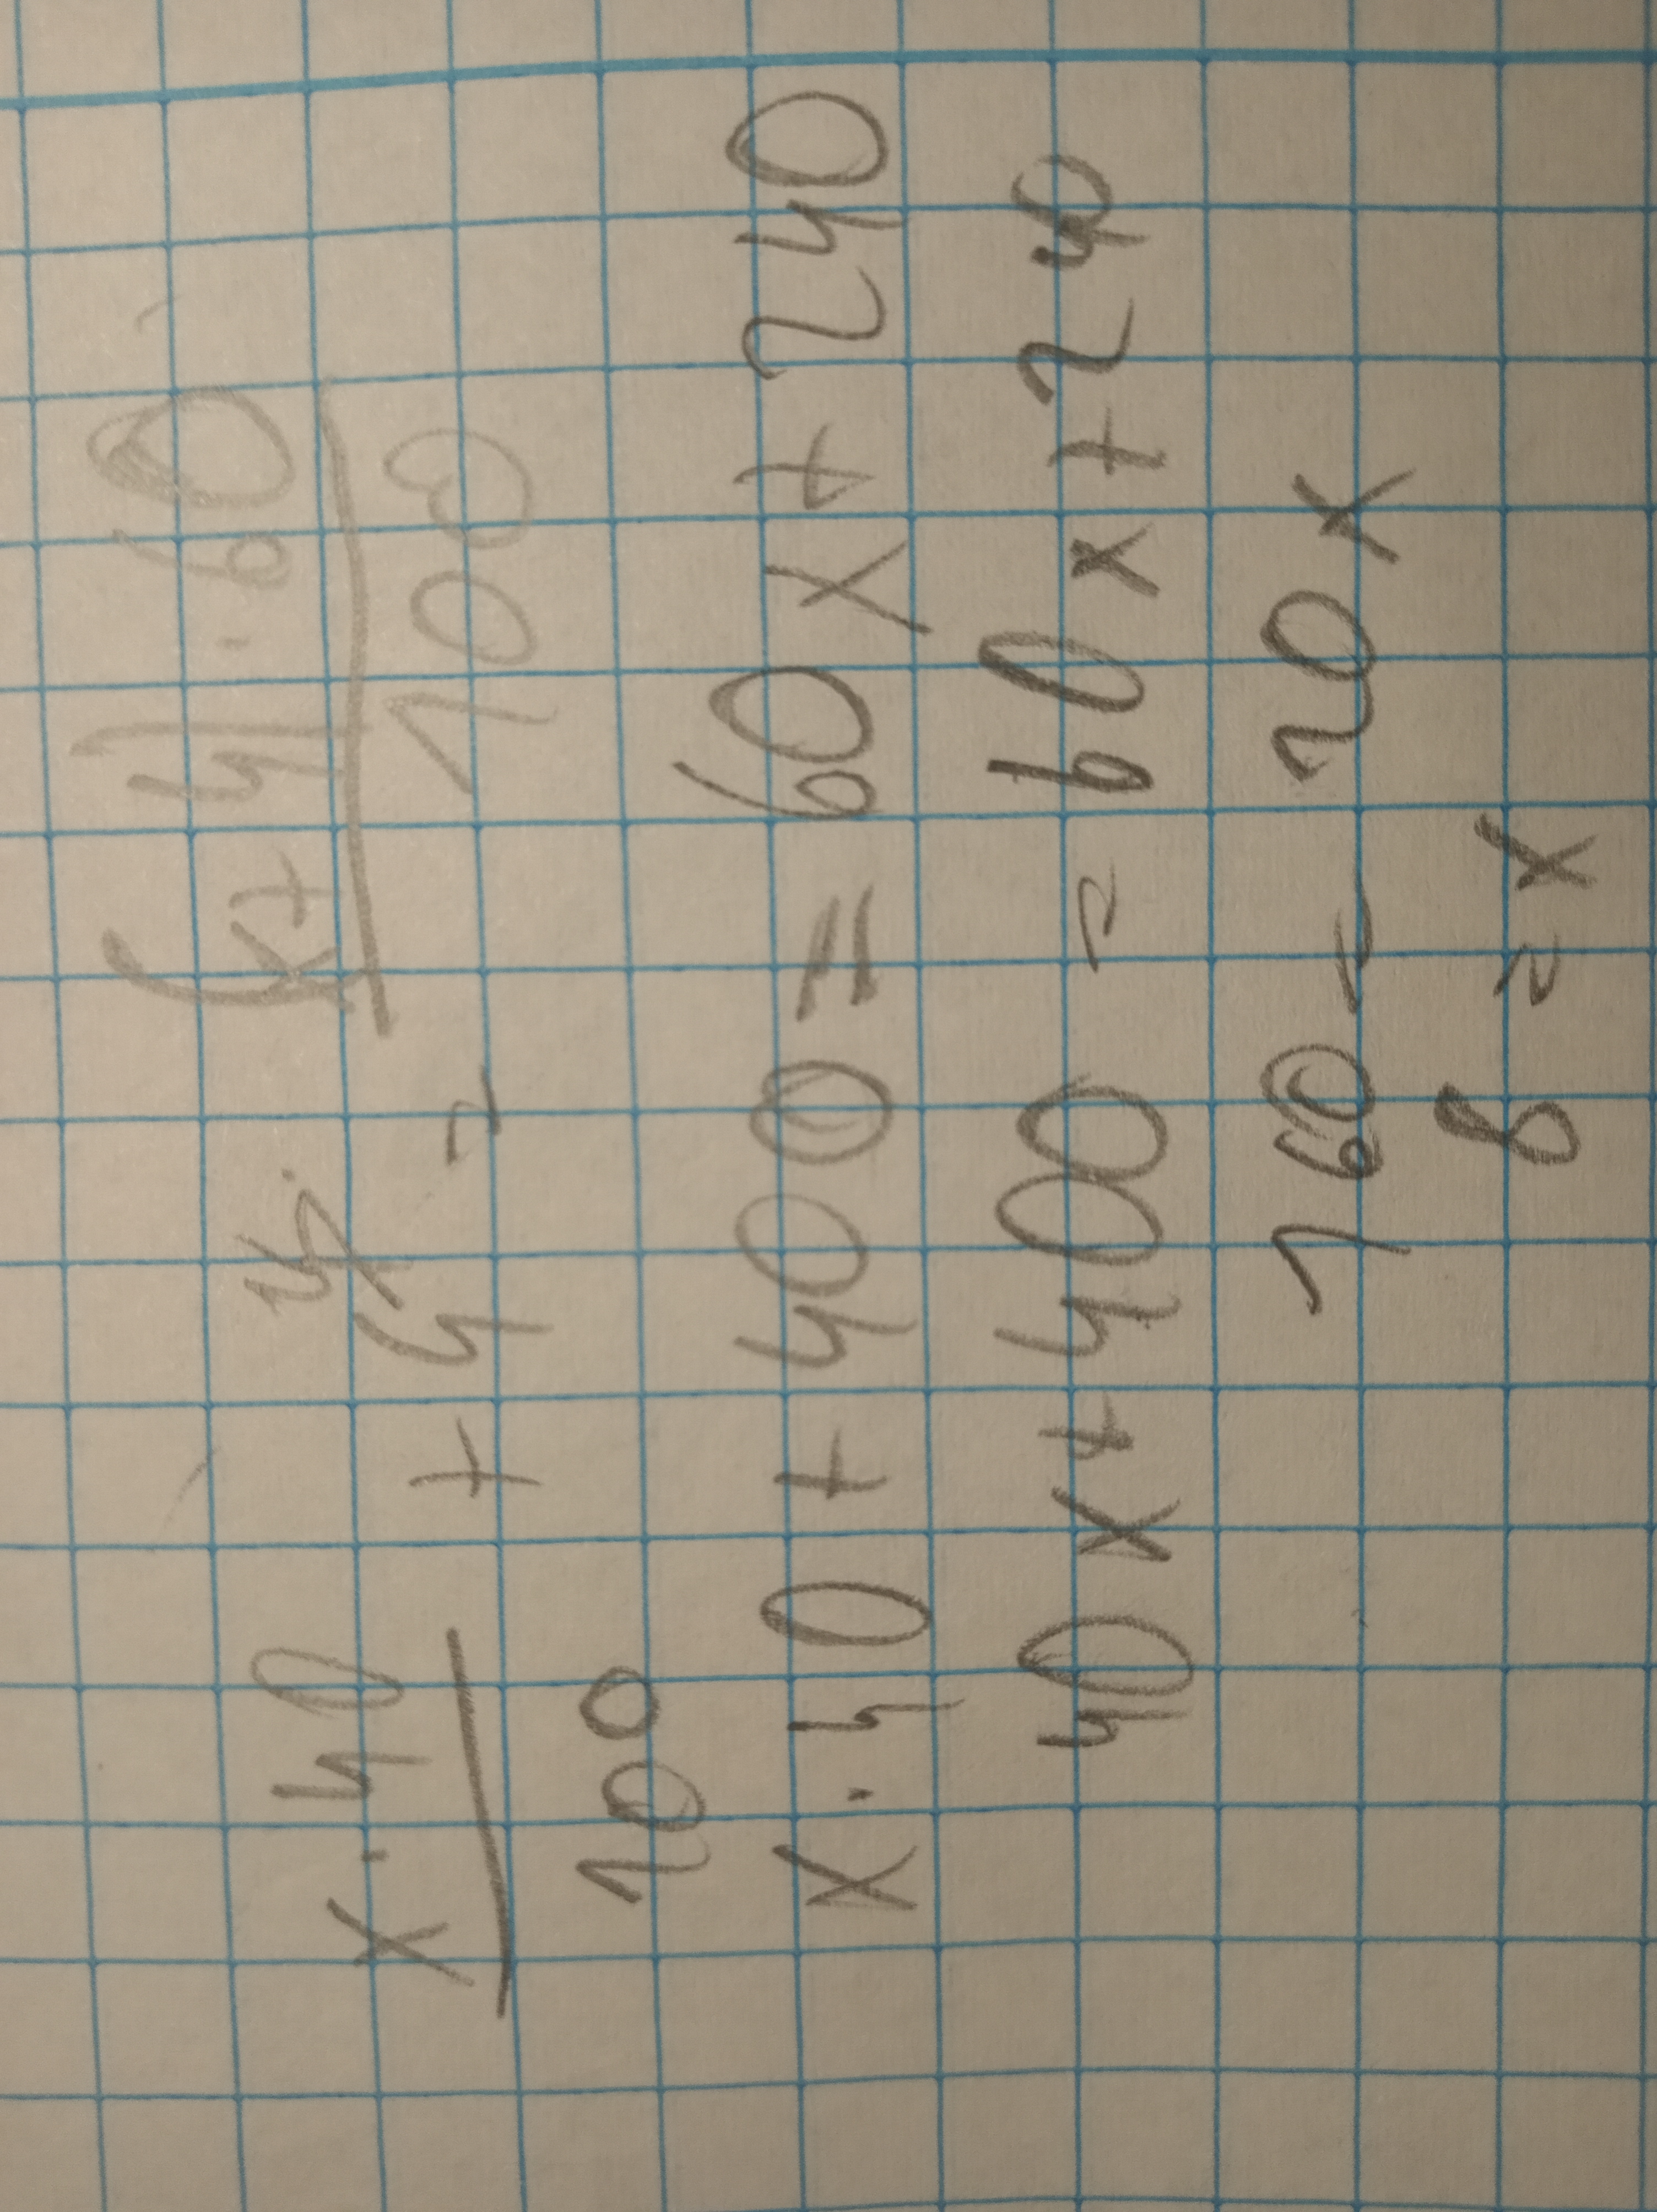 x·40/100 + 4 = (x+4)·60/100
x·40 + 400 = 60x + 240
40x + 400 = 60x + 240
160 = 20x
8 = x